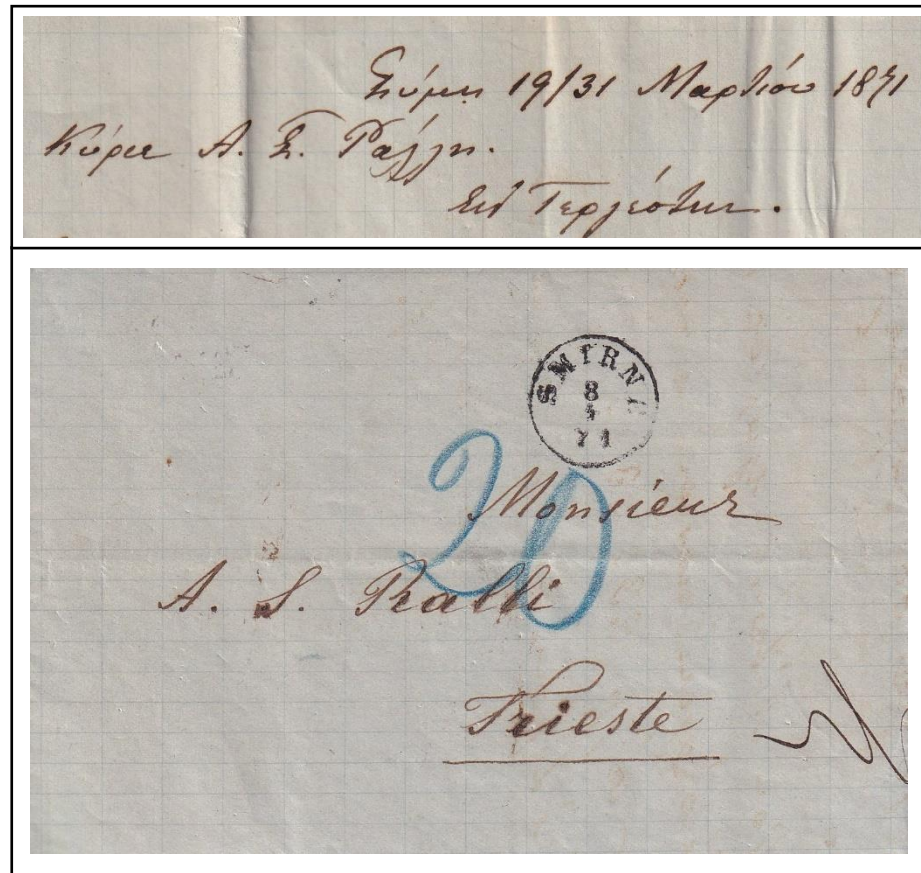 Σύμη 19/31 Μαρτίου 1871
Κύριε Α. Σ. Ράλλη.
Εις Τεργέστην.
SMIRNE
8
4
71
20
Monsieur
A. S. Ralli
Trieste